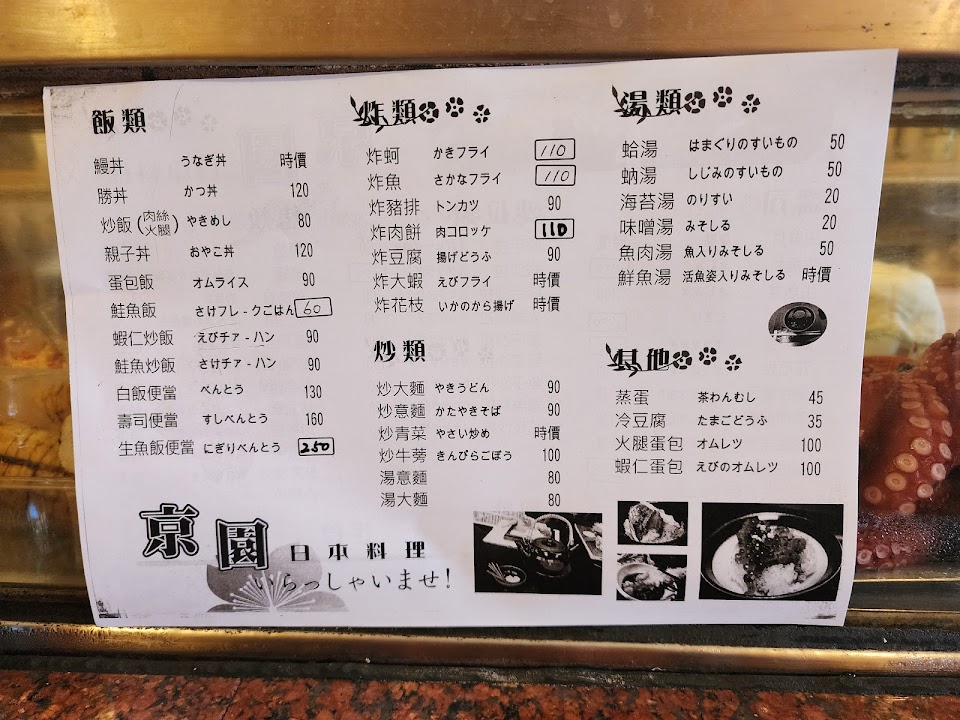 飯類
鰻丼 うなぎ丼 時價
勝丼 かつ丼 120
炒飯(肉絲火腿) やきめし 80
親子丼 おやこ丼 120
蛋包飯 オムライス 90
鮭魚飯 さけフレ-クごはん 60
蝦仁炒飯 えびチァ-ハン 90
鮭魚炒飯 さけチァ-ハン 90
白飯便當 べんとう 130
壽司便當 すしべんとう 160
生魚飯便當 にぎりべんとう 250
炸類
炸蚵 かきフライ 110
炸魚 さかなフライ 110
炸豬排 トンカツ 90
炸肉餅 肉コロッケ 110
炸豆腐 揚げどうふ 90
炸大蝦 えびフライ 時價
炸花枝 いかのから揚げ 時價
炒類
炒大麵 やきうどん 90
炒意麵 かたやきそば 90
炒青菜 やさい炒め 時價
炒牛蒡 きんぴらごぼう 100
湯意麵 80
湯大麵 80
湯類
蛤湯 はまぐりのすいもの 50
蚋湯 しじみのすいもの 50
海苔湯 のりすい 20
味噌湯 みそしる 20
魚肉湯 魚入りみそしる 50
鮮魚湯 活魚姿入りみそしる 時價
其他
蒸蛋 茶わんむし 45
冷豆腐 たまごどうふ 35
火腿蛋包 オムレツ 100
蝦仁蛋包 えびのオムレツ 100
京園日本料理
いらっしゃいませ!